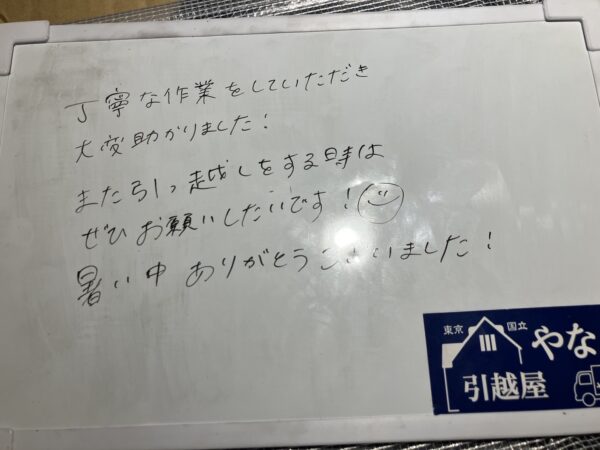 丁寧な作業をしていただき
大変助かりました!
また引っ越しをする時は
ぜひお願いしたいです!
暑い中ありがとうございました!
東京 国立 やな
引越屋